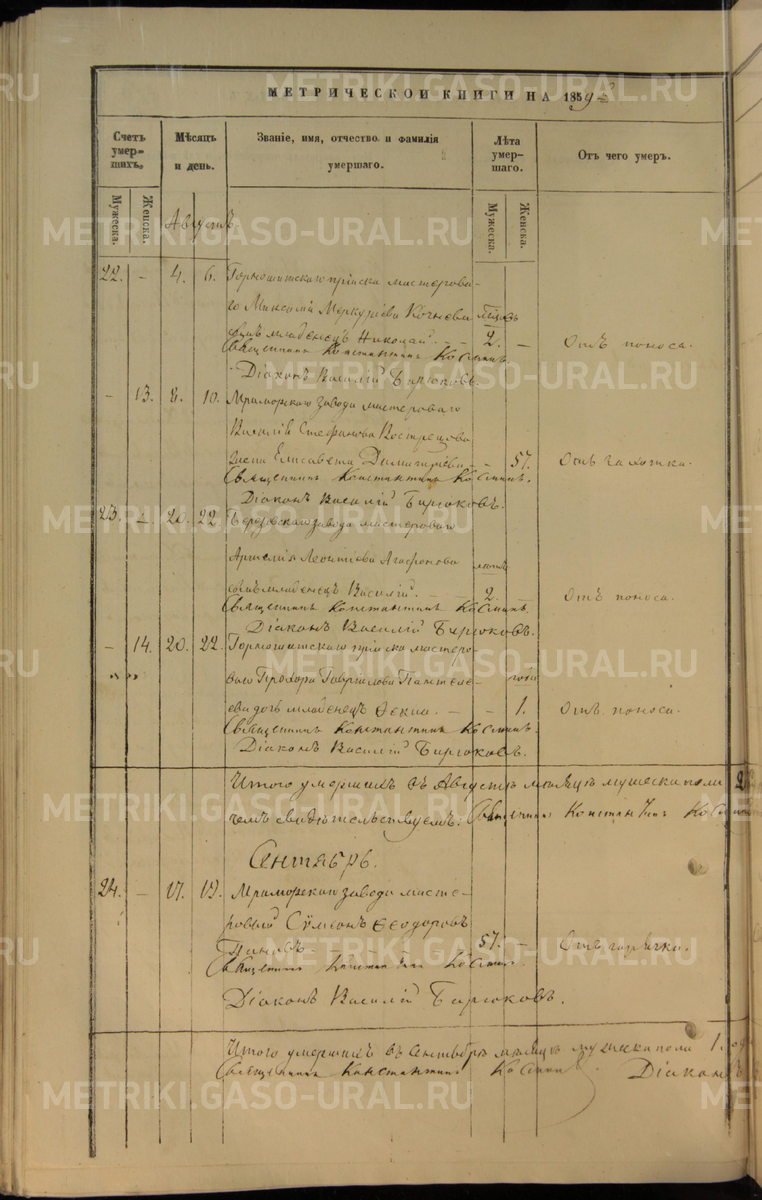 МЕТРИЧЕСКОЙ КНИГИ НА 1859
Счетъ умершихъ.
Мѣсяцъ и день.
Званіе, имя, отчество и фамилія умершаго.
Лѣта умершаго.
Отъ чего умеръ.
Мужеска.
Женска.
Мужеска.
Женска.
Августъ
22. - 4. 6. Горнощитскаго пріиска мастерова-
го Максима Меркурьева Кочнева
сынъ младенецъ Николай. 2. - Отъ поноса.
Священникъ Константинъ
Діаконъ Василій Бирюковъ.
- 13. 8. 10. Мраморскаго завода мастероваго
Василія Стефанова Вострецова
жена Елисавета - 57. Отъ чахотки.
Священникъ Константинъ
Діаконъ Василій Бирюковъ.
23. - 20. 22. Березовскаго завода мастероваго
Леонтіева Агафонова
сынъ младенецъ Василій. 2. - Отъ поноса.
Священникъ Константинъ
Діаконъ Василій Бирюковъ.
- 14. 20. 22. Горнощитскаго пріиска мастеро-
ваго Прохора Гаврилова Пантеле- года
ева дочь младенецъ Ѳекла. - 1. Отъ поноса.
Священникъ Константинъ
Діаконъ Василій Бирюковъ.
Итого умершихъ въ Августѣ мѣсяцѣ мужеска пола 2
чемъ свидѣтельствуемъ: Священникъ Константинъ
Сентябрь.
24. - 17. 19. Мраморскаго завода масте-
ровый Сумеонъ Ѳеодоровъ
57. - Отъ горячки.
Священникъ Константинъ
Діаконъ Василій Бирюковъ.
Итого умершихъ въ Сентябрѣ мѣсяцѣ мужеска пола 1.
Священникъ Константинъ Діаконъ
METRIKI.GASO-URAL.RU